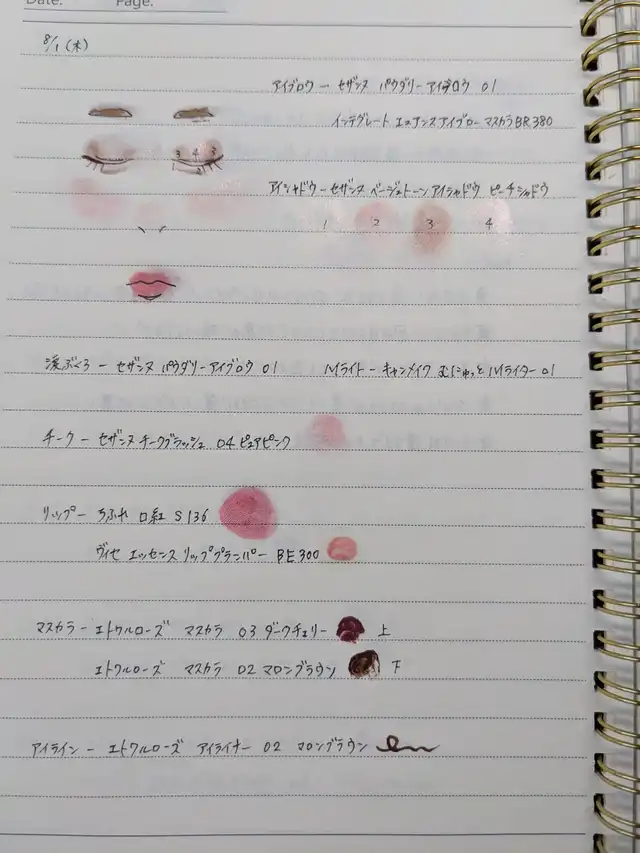 Date: Page:
8/1 (木)
アイブロウ ー セザンヌ パウダリーアイブロウ 01
インテグレート ニュアンスアイブローマスカラ BR380
3 4 3
アイシャドウーセザンヌ ベージュトーンアイシャドウ ピーチシャドウ
1 2 3 4
涙ぶくろ ー セザンヌ パウダリーアイブロウ 01 ハイライト ー キャンメイク むにゅっとハイライター 01
チーク ー セザンヌ チークブラッシュ 04 ピュアピンク
リップー ちふれ 口紅 S136
ヴィセ エッセンス リッププランパー BE300
マスカラー エトヴァルローズ マスカラ 03 ダークチェリー 上
エトヴァルローズ マスカラ 02 マロンブラウン 下
アイライン ー エトヴァルローズ アイライナー 02 マロンブラウン